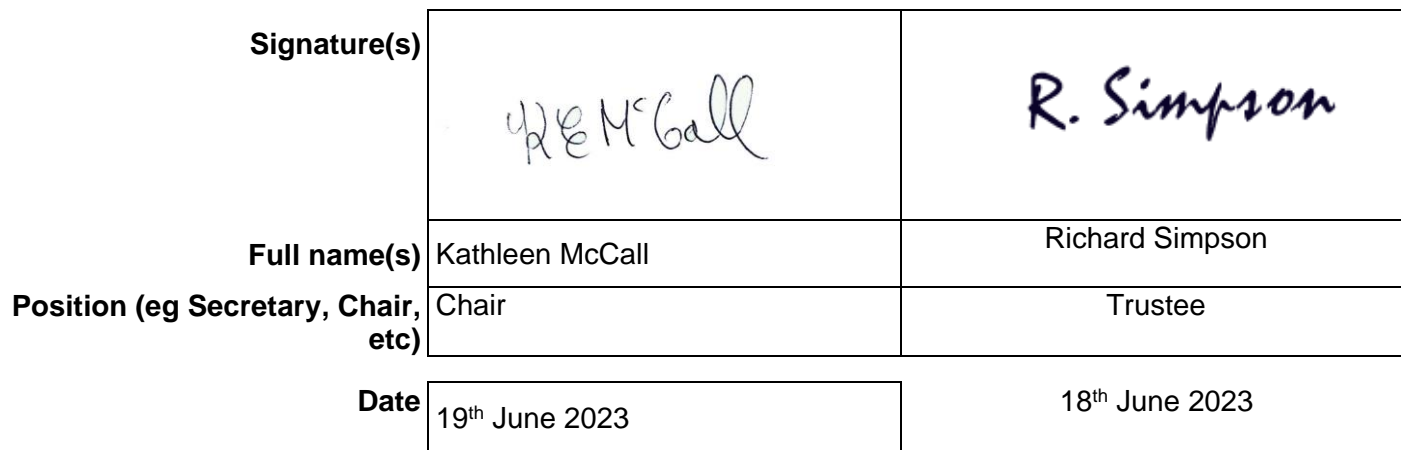 Signature(s)
KE McCall
R. Simpson
Full name(s) Kathleen McCall Richard Simpson
Position (eg Secretary, Chair, Chair Trustee
etc)
Date 19th June 2023 18th June 2023